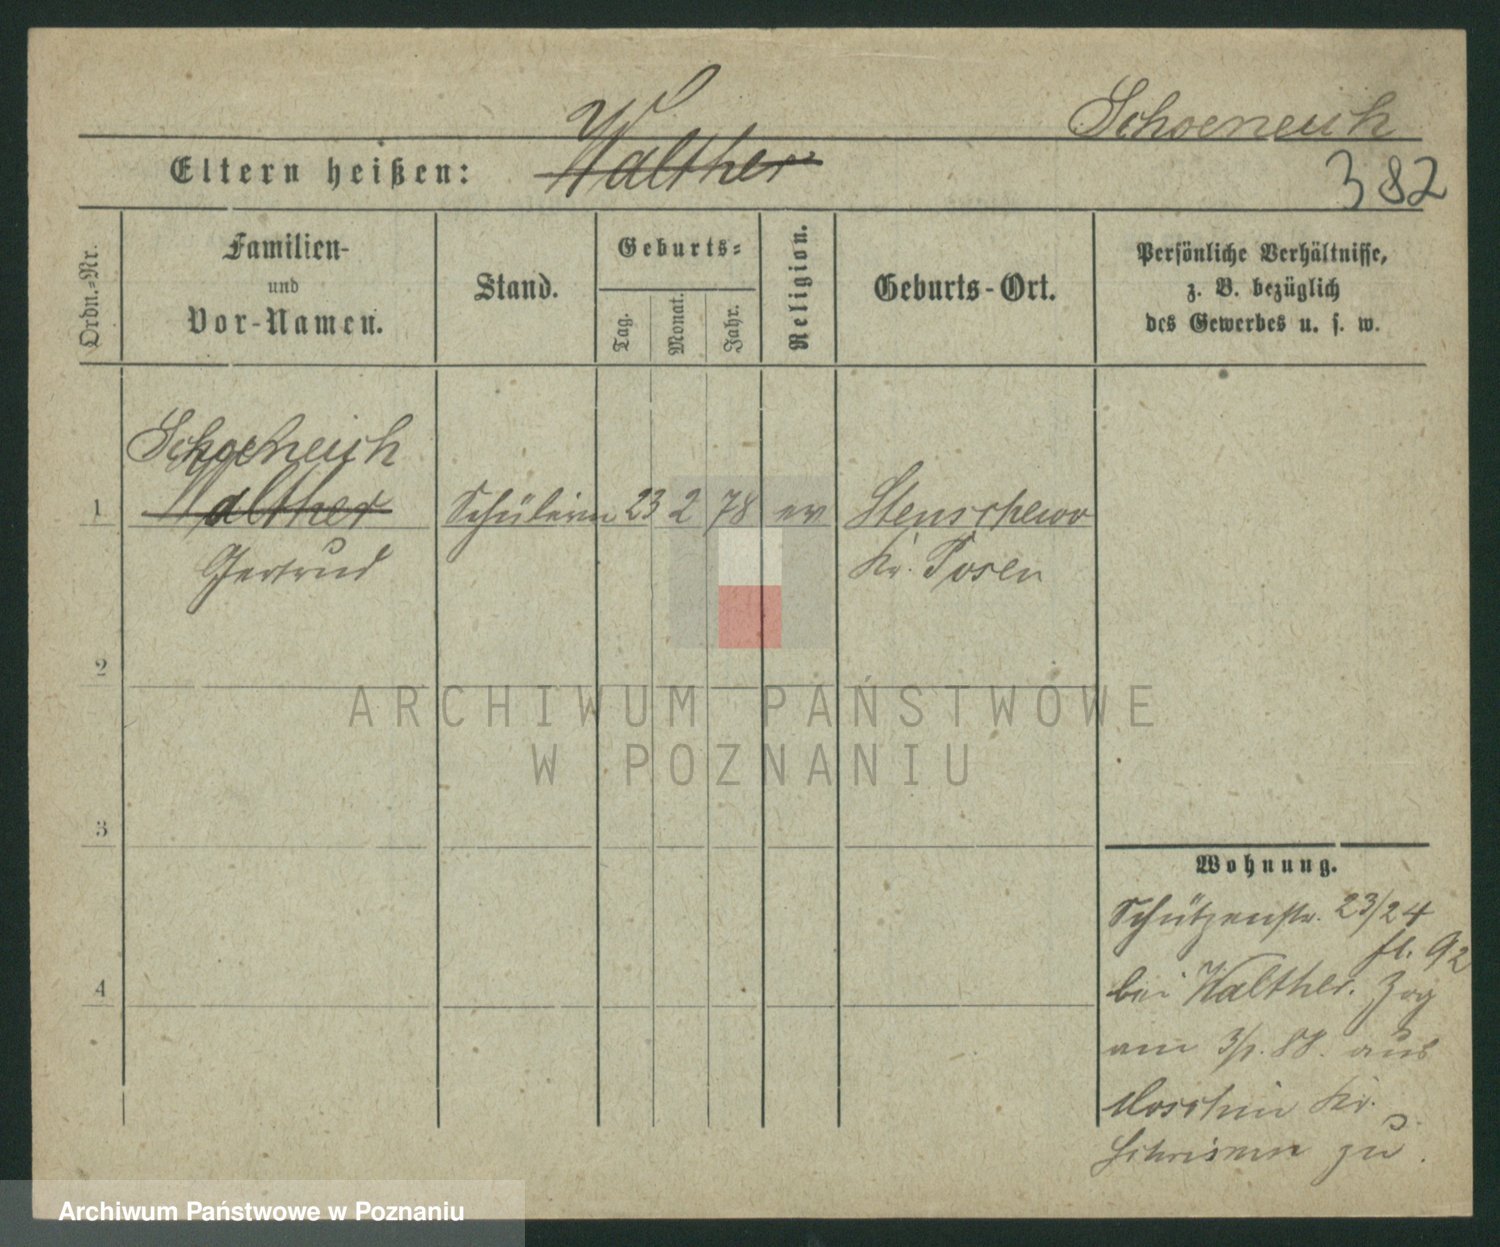 Schoeneich
Eltern heißen: Walther
382
Ordn.-Nr.
Familien-
und
Vor-Namen.
Stand.
Geburts-
Tag.
Monat.
Jahr.
Religion.
Geburts-Ort.
Persönliche Verhältnisse,
z. B. bezüglich
des Gewerbes u. s. w.
Schoeneich
1 Walther Schülerin 23 2 78 ev Stenschewo
Gertrud Kr. Posen
2
3
4
ARCHIWUM PAŃSTWOWE
W POZNANIU
Wohnung.
Schützenstr. 23/24
fl. 92
bei Walther. Zog
am 3/1. 88. aus
Moschin Kr.
Schrimm zu.
Archiwum Państwowe w Poznaniu